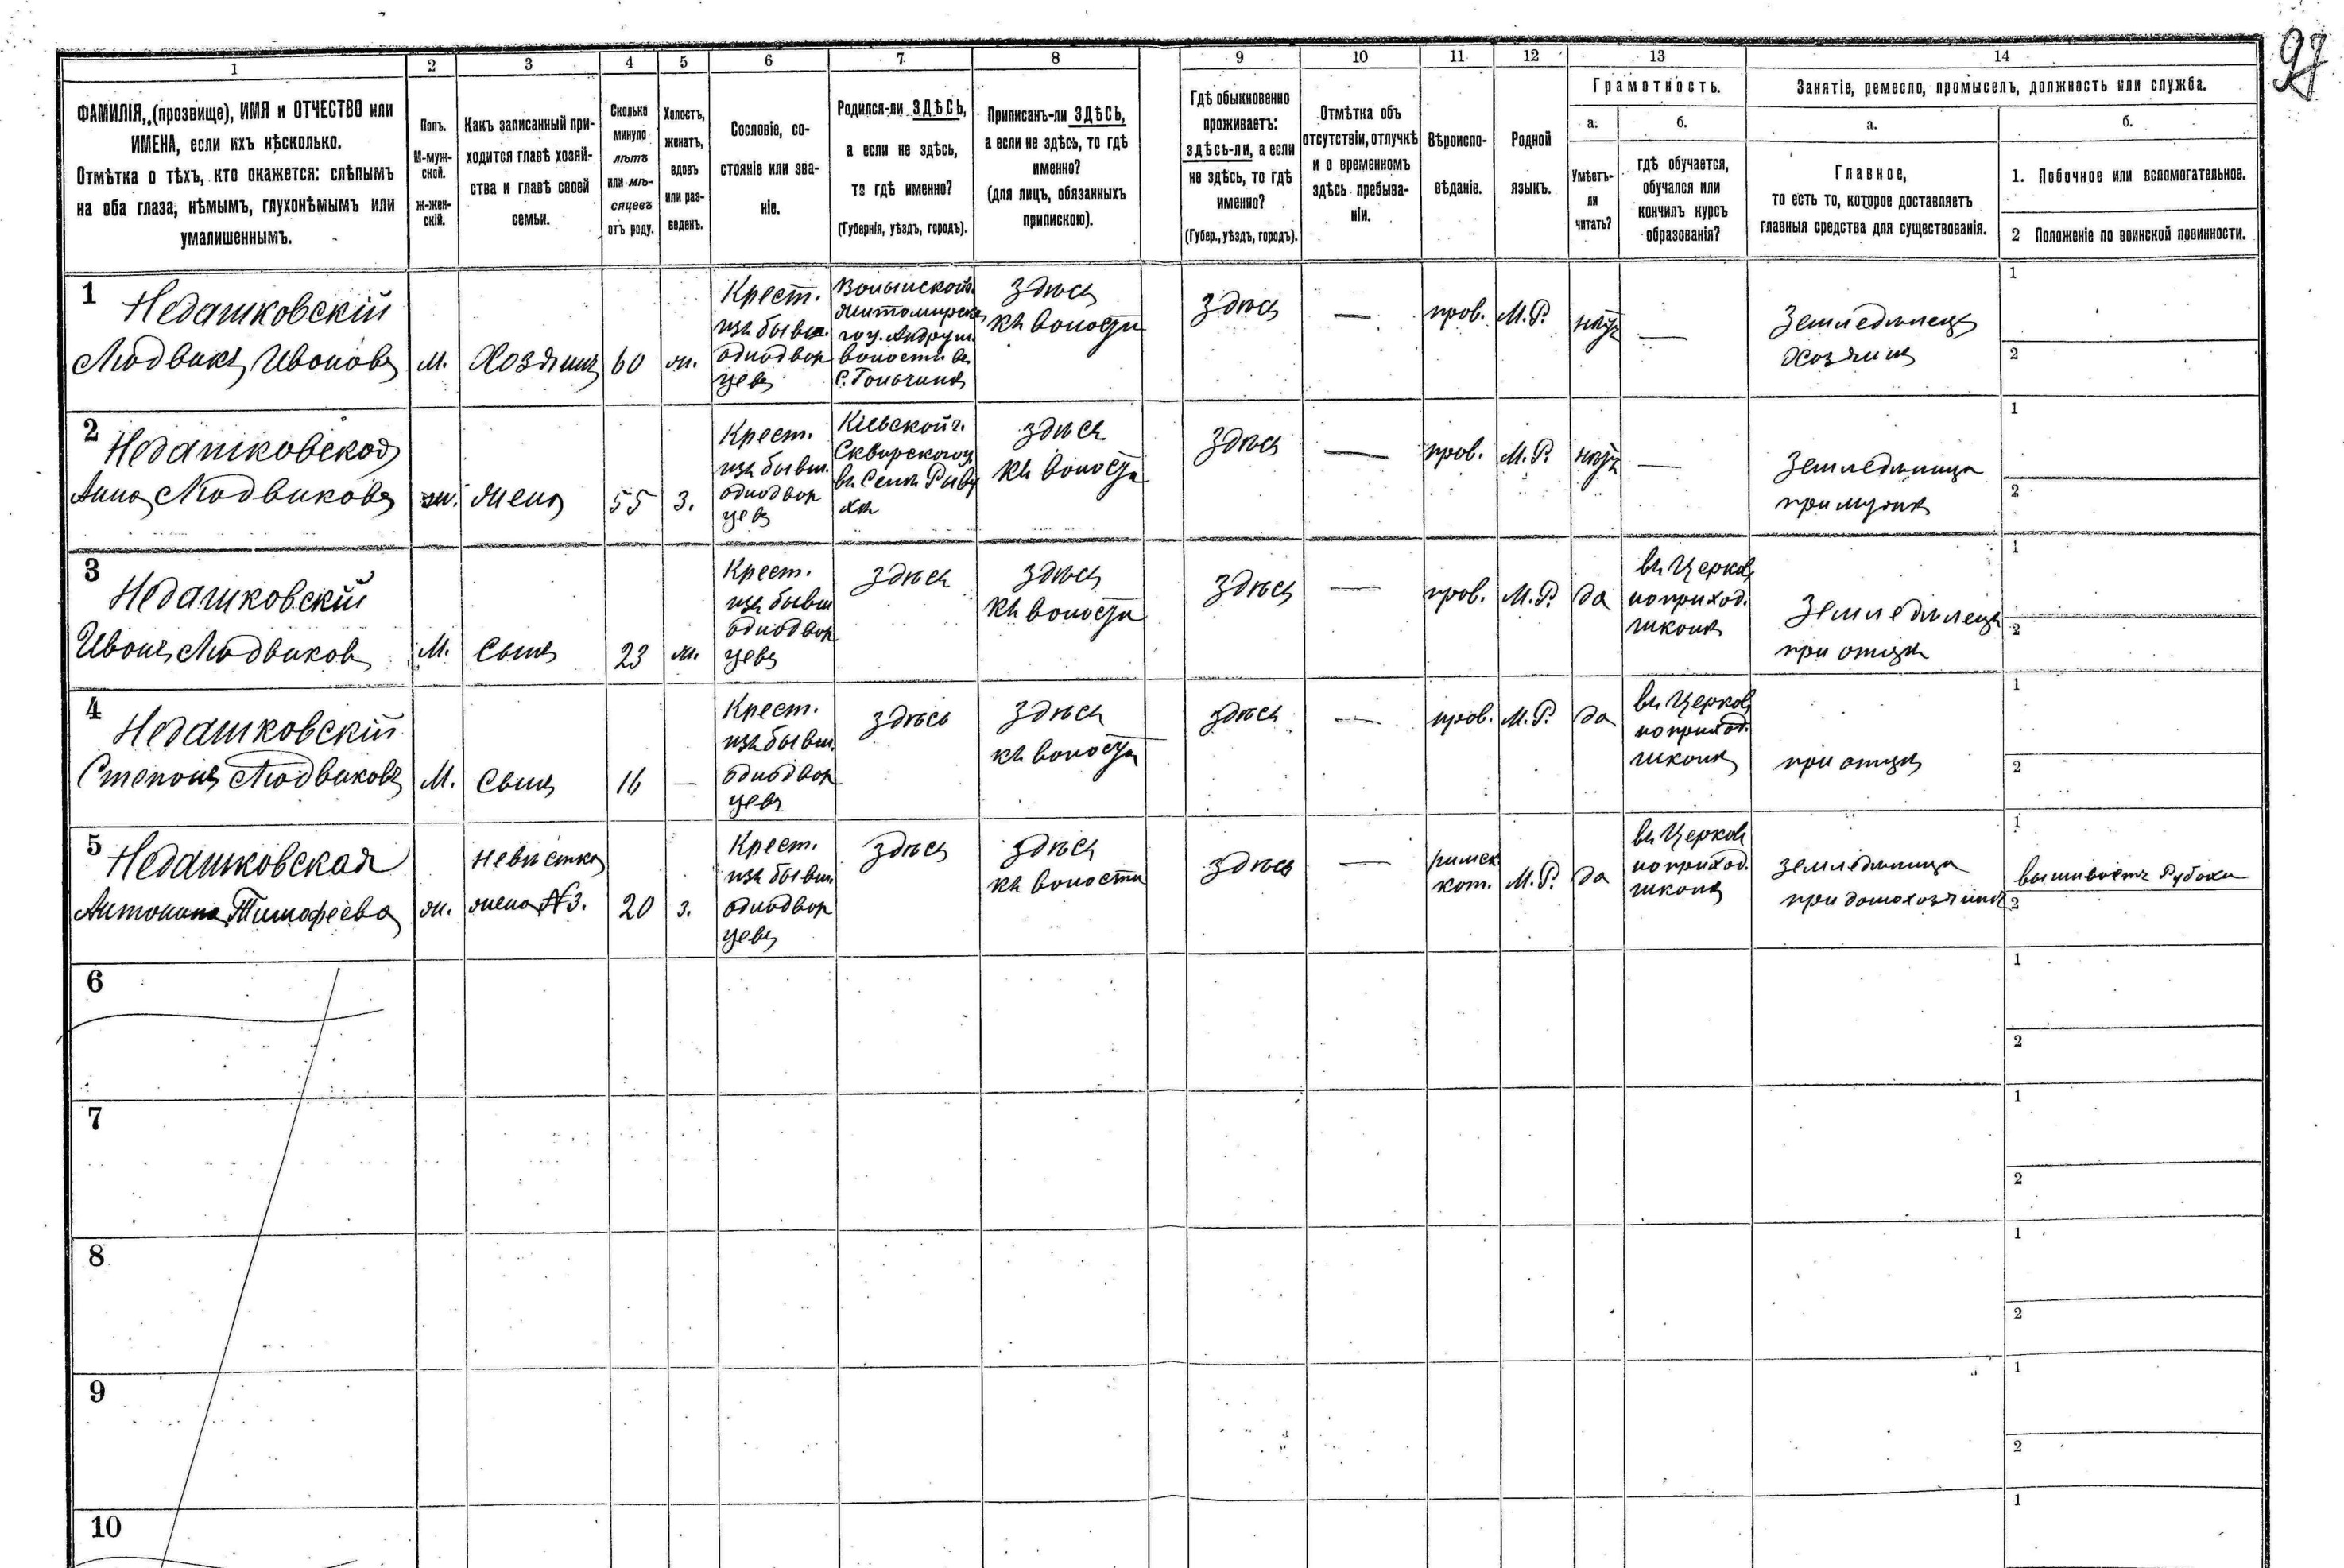 97
1 2 3 4 5 6 7 8 9 10 11 12 13 14
ФАМИЛІЯ, (прозвище), ИМЯ и ОТЧЕСТВО или
ИМЕНА, если ихъ нѣсколько.
Отмѣтка о тѣхъ, кто окажется: слѣпымъ
на оба глаза, нѣмымъ, глухонѣмымъ или
умалишеннымъ.
Полъ.
М-муж-
ской.
Ж-жен-
скій.
Какъ записанный при-
ходится главѣ хозяй-
ства и главѣ своей
семьи.
Сколько
минуло
лѣтъ
или мѣ-
сяцевъ
отъ роду.
Холостъ,
женатъ,
вдовъ
или раз-
веденъ.
Сословіе, со-
стояніе или зва-
ніе.
Родился-ли ЗДѢСЬ,
а если не здѣсь,
то гдѣ именно?
(Губернія, уѣздъ, городъ).
Приписанъ-ли ЗДѢСЬ,
а если не здѣсь, то гдѣ
именно?
(для лицъ, обязанныхъ
припискою).
Гдѣ обыкновенно
проживаетъ:
здѣсь-ли, а если
не здѣсь, то гдѣ
именно?
(Губер., уѣздъ, городъ).
Отмѣтка объ
отсутствіи, отлучкѣ
и о временномъ
здѣсь пребыва-
ніи.
Вѣроиспо-
вѣданіе.
Родной
языкъ.
Грамотность.
а.
Умѣетъ-
ли
читать?
б.
гдѣ обучается,
обучался или
кончилъ курсъ
образованія?
Занятіе, ремесло, промыселъ, должность или служба.
а.
Главное,
то есть то, которое доставляетъ
главныя средства для существованія.
б.
1. Побочное или вспомогательное.
2 Положеніе по воинской повинности.
1
Недашковскій
Людвикъ Ивановъ
М.
Хозяинъ
60
ж.
Крест.
изъ бывш.
однодвор
цевъ
Волынской г.
Житомирска
го у. Андруш.
волости въ
с.
здѣсь
къ волости
здѣсь
—
прав.
М.Р.
нѣтъ
—
Земледѣлецъ
хозяинъ
1
2
2
Недашковская
Анна Людвикова
ж.
жена
55
з.
Крест.
изъ бывш.
однодвор
цевъ
Кіевской г.
Сквирского у.
въ Селѣ
здѣсь
къ волости
здѣсь
—
прав.
М.Р.
нѣтъ
—
Земледѣлица
при мужѣ
1
2
3
Недашковскій
Иванъ Людвиковъ
М.
Сынъ
23
ж.
Крест.
изъ бывш
однодвор
цевъ
здѣсь
здѣсь
къ волости
здѣсь
—
прав.
М.Р.
да
въ Церков
ноприход.
школѣ
Земледѣлецъ
при отцѣ
1
2
4
Недашковскій
Степанъ Людвиковъ
М.
Сынъ
16
—
Крест.
изъ бывш.
однодвор
цевъ
здѣсь
здѣсь
къ волости
здѣсь
—
прав.
М.Р.
да
въ Церков
ноприход.
школѣ
при отцѣ
1
2
5
Недашковская
Антонина Тимофеева
ж.
невѣстка
жена №3.
20
з.
Крест.
изъ бывш.
однодвор
цевъ
здѣсь
здѣсь
къ волости
здѣсь
—
римск
кат.
М.Р.
да
въ Церков
ноприход.
школѣ
земледѣлица
при домохозяинѣ
1
вышиваетъ Рубахи
2
6
1
2
7
1
2
8
1
2
9
1
2
10
1